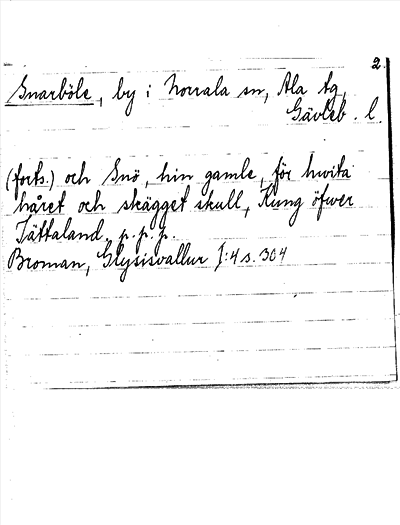 2.
Snarböle, by i Norrala sn, Ala tg,
Gävleb. l.
(forts.) och Snö, hin gamle, för hwita
håret och skägget skull, Kung öfwer
Jättaland. p. p. p.
Broman, Glysisvallur I:4 s. 304